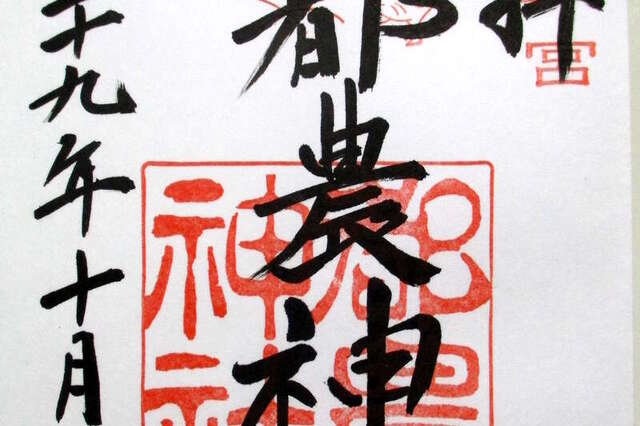 拝
宮
都農神
都農
神社
十九年十月